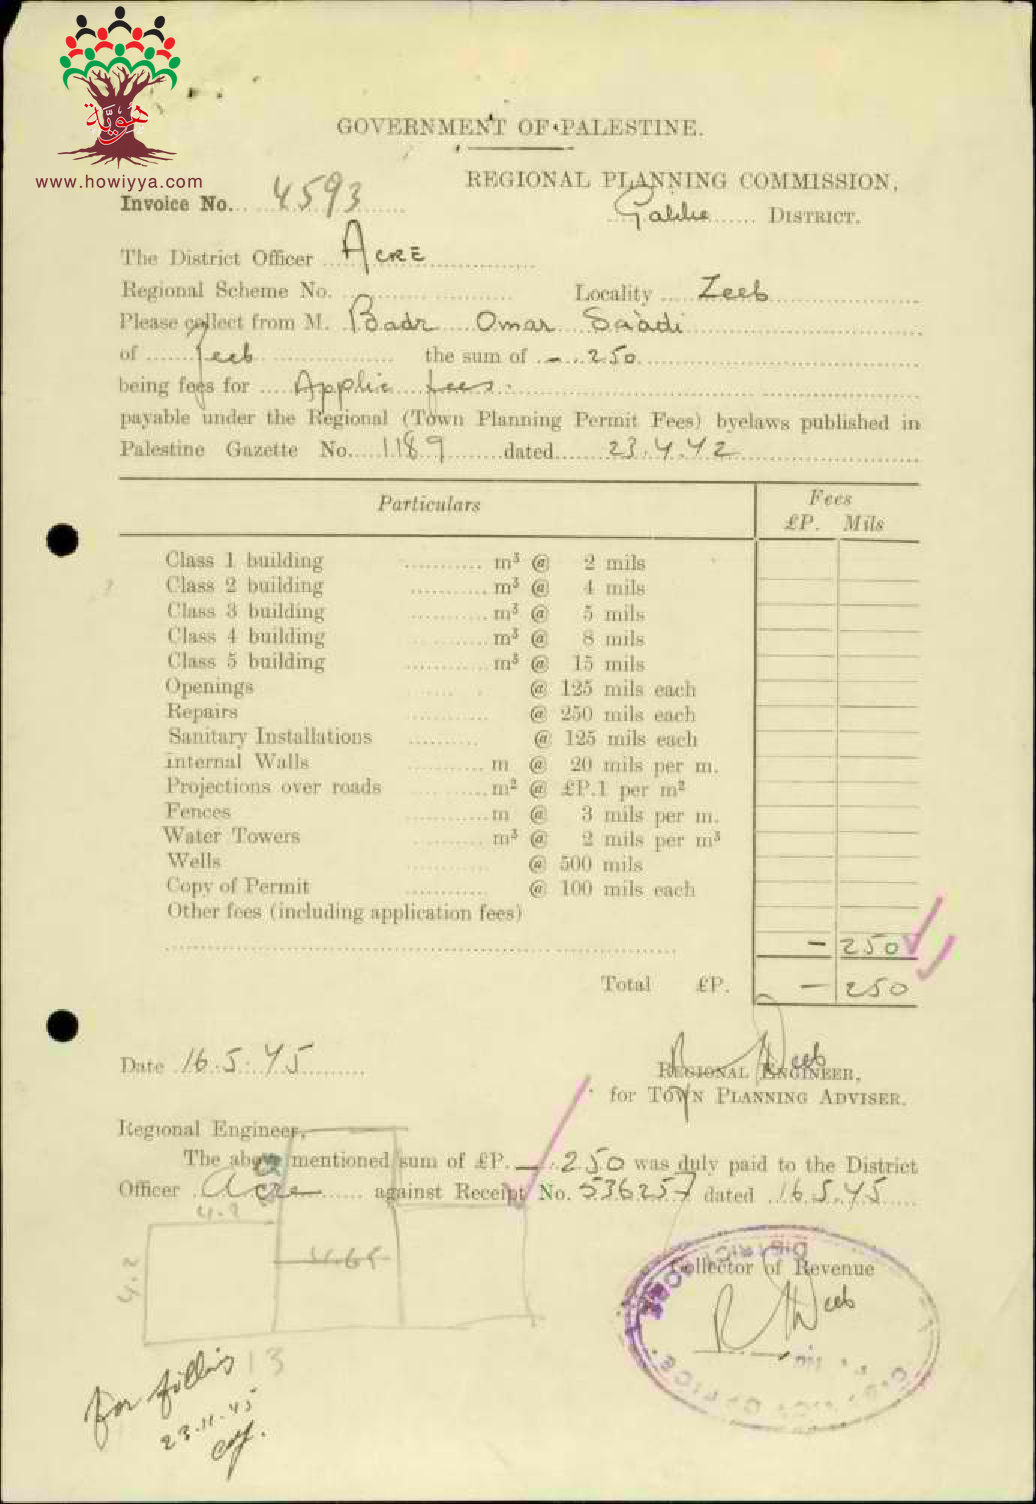 هوية
www.howiyya.com
GOVERNMENT OF PALESTINE.
REGIONAL PLANNING COMMISSION,
Invoice No. 4593
Galilee DISTRICT.
The District Officer ACRE
Regional Scheme No. Locality Zeeb
Please collect from M. Badr Omar Sa'adi
of Zeeb the sum of - .250
being fees for Applic fees.
payable under the Regional (Town Planning Permit Fees) byelaws published in
Palestine Gazette No. 1189 dated 23.4.42
Particulars Fees
£P. Mils
Class 1 building m³ @ 2 mils
Class 2 building m³ @ 4 mils
Class 3 building m³ @ 5 mils
Class 4 building m³ @ 8 mils
Class 5 building m³ @ 15 mils
Openings @ 125 mils each
Repairs @ 250 mils each
Sanitary Installations @ 125 mils each
Internal Walls m @ 20 mils per m.
Projections over roads m² @ £P.1 per m²
Fences m @ 3 mils per m.
Water Towers m³ @ 2 mils per m³
Wells @ 500 mils
Copy of Permit @ 100 mils each
Other fees (including application fees)
- 250
Total £P. - 250
Date 16.5.45
REGIONAL ENGINEER,
for TOWN PLANNING ADVISER.
Regional Engineer,
The above mentioned sum of £P. - .250 was duly paid to the District
Officer Acre against Receipt No. 536257 dated 16.5.45
4.2
4.2
4.65
Collector of Revenue
DISTRICT OFFICE
13
For filling
23.11.45